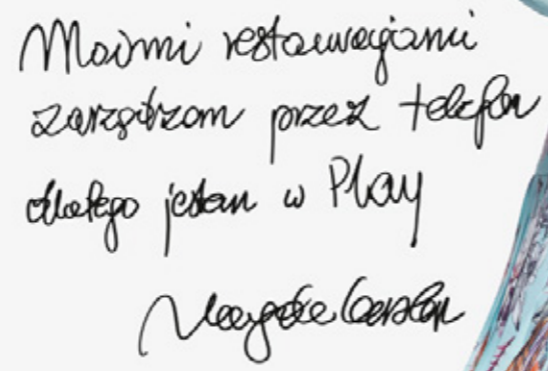 Moimi restauracjami
zarządzam przez telefon
dlatego jestem w Play